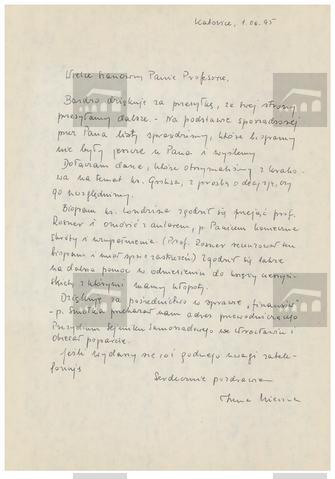 Katowice, 1.06.95
Wielce Szanowny Panie Profesorze,
Bardzo dziękuję za przesyłkę, ze swej strony
przesyłamy dalsze. - Na podstawie sporządzonej
przez Pana listy sprawdzimy, które biogramy
nie były jeszcze u Pana i wyślemy
Dołączam dane, które otrzymaliśmy z Krako-
wa na temat ks. z prośbą o decyzję, czy
go uwzględnimy.
Biogram ks. Londzina zgodził się przejąć prof.
Rosner i omówić z autorem, p. Panicem konieczne
skróty i uzupełnienia. (Prof. Rosner recenzował ten
biogram i miał sporo zastrzeżeń) Zgodził się także
na dalszą pomoc w odniesieniu do księży cieszyń-
skich z którymi mamy kłopoty.
Dziękuję za pośrednictwo w sprawie "finansów"
- p. Smolka przekazał nam adres przewodniczącego
Prezydium Sejmiku Samorządowego we Wrocławiu i
obiecał poparcie.
Jeśli wydarzy się coś godnego uwagi zatele-
fonuję
Serdecznie pozdrawiam